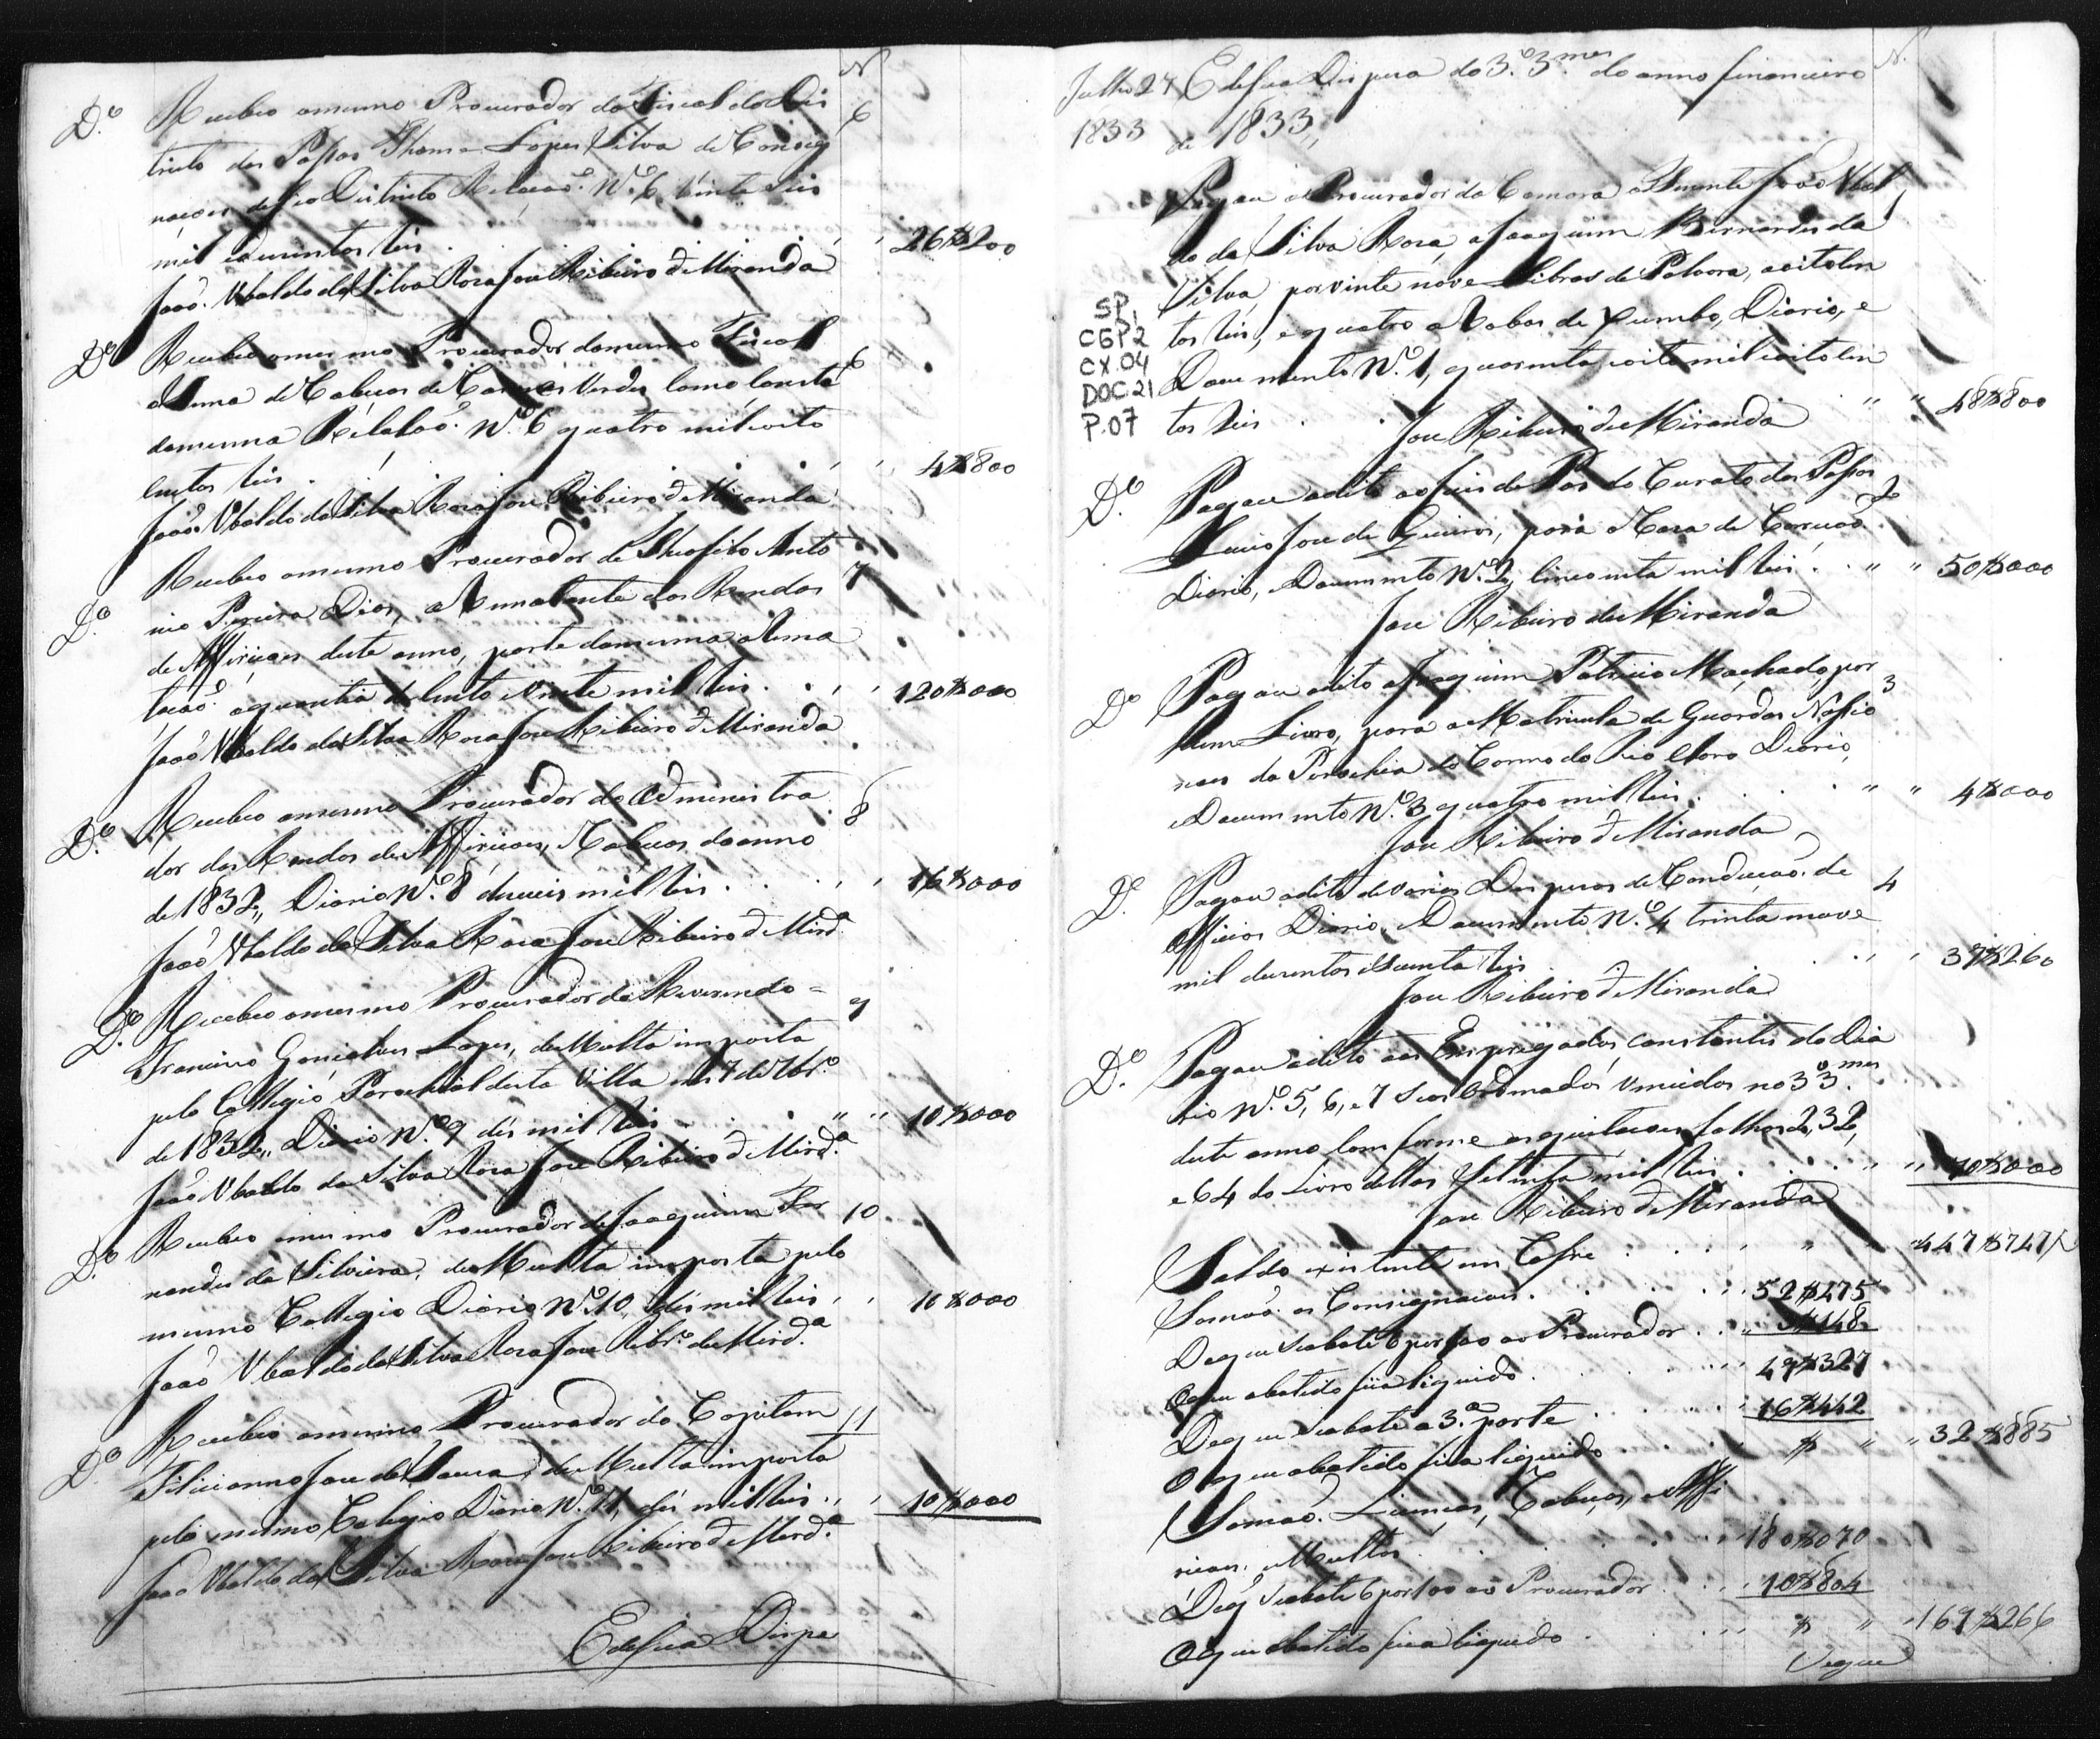 N
D.º Recebeo omesmo Procurador do Fiscal do Dis 6
tricto dos Passos Thome Lopes Silva de Consig
naçoes do seo Districto Relacaõ. N.º 6, vinte seis
mil eduzentos reis . 26$200
Joaõ. Ubaldo da Silva Rosa Jose Ribeiro d Miranda
D.º Recebeo omesmo Procurador domesmo Fiscal 6
de Cabeças de Carnes Verdes Como Consta
damesma Relacaõ. N.º 6 quatro mil eoito
Centos reis . 4$800
Joaõ Ubaldo da Silva Rosa Jose Ribeiro d Miranda
D.º Recebeo omesmo Procurador de Theofilo Anto 7
nio Pereira Dias, aRematante das Rendas
de Affiriçoes deste anno, parte damesma aRema
tacaõ aquantia de Cento e vinte mil reis . 120$000
Joaõ Ubaldo da Silva Rosa Jose Ribeiro d Miranda
D.º Recebeo omesmo Procurador do Administra 8
dor das Rendas de Affiriçoes, e Cabeças do anno
de 1832,, Diario N.º 8 dezeseis mil reis . 16$000
Joaõ Ubaldo da Silva Rosa Jose Ribeiro d Mird.ª
D.º Recebeo omesmo Procurador do Reverendo = 9
Francisco Gonçalves Lopes, de Multa imposta
pelo Collegio Parochial desta Villa em 7 de 7br.º
de 1832,, Diario N.º 9 dés mil reis 10$000
Joaõ Ubaldo da Silva Rosa Jose Ribeiro d Mird.ª
D.º Recebeo omesmo Procurador de Joaquim Fer 10
nandes da Silveira, de Multa imposta pelo
mesmo Collegio Diario N.º 10, dés mil reis 10$000
Joaõ Ubaldo da Silva Rosa Jose Ribr.º de Mird.ª
D.º Recebeo omesmo Procurador do Capitam 11
Feliciano Jose de Souza, de Multa imposta
pelo mesmo Collegio Diario N.º 11, dés mil reis 10$000
Joaõ Ubaldo da Silva Rosa Jose Ribeiro d Mird.ª
E desua Dispe
Julho 27 E desua Dispeza do 3.º 3.mes do anno financeiro N.
1833 de 1833,,
Pagou o Procurador da Camara João Ubal 1
do da Silva Rosa, a Joaquim Bernardes da
Silva, por vinte nove Libras de Polvora, aoitocen
tos reis, e quatro de Xumbo, Diario, e
Documento N.º 1, quarenta eoito mil eoitocen
tos reis . 48$800
Jose Ribeiro de Miranda
SP.
CGP2
CX.04
DOC.21
P.07
D.º Pagou odito ao Juis de Pas do Curato dos Passos 2
Jose de Queiros, para a Casa de Correcaõ.
Diario, e Documento N.º 2, cincoenta mil reis . 50$000
Jose Ribeiro de Miranda
D.º Pagou odito a Joaquim Patricio Machado por 3
hum Livro, para a Matricula de Guardas Nassio
naes da Parochia do Carmo do Rio Claro Diario,
e Documento N.º 3 quatro mil reis . 4$000
Jose Ribeiro d Miranda
D.º Pagou odito de varias Dispezas de Conducaõ. de 4
Officios Diario, e Documento N.º 4 trinta nove
mil duzentos e Secenta reis . 39$260
Jose Ribeiro d Miranda
D.º Pagou odito aos Empregados constantes do Dia
rio N.º 5, 6, e 7 Seos Ordenados vencidos no 3.º 3.mes
deste anno Comforme as quitacoens folhas 2, 32,
e 64 do Livro dellas Setenta mil reis . 70$000
Jose Ribeiro d Miranda
Saldo existente em Cofre . 447$747
Somaõ. as Consignacoes . 52$475
Deque seabate 6 por 100 ao Procurador . 3$148
Oque abatido fica liquido . 49$327
Deque seabate a 3.ª parte . 16$442
Oque abatido fica liquido $ 32$885
Somaõ. Licenças, Cabeças, e Affi
riçoes, e Multas . 180$070
Deq̃ seabate 6 por 100 ao Procurador . 10$804
Oque abatido fica liquido . $ 169$266
Segue